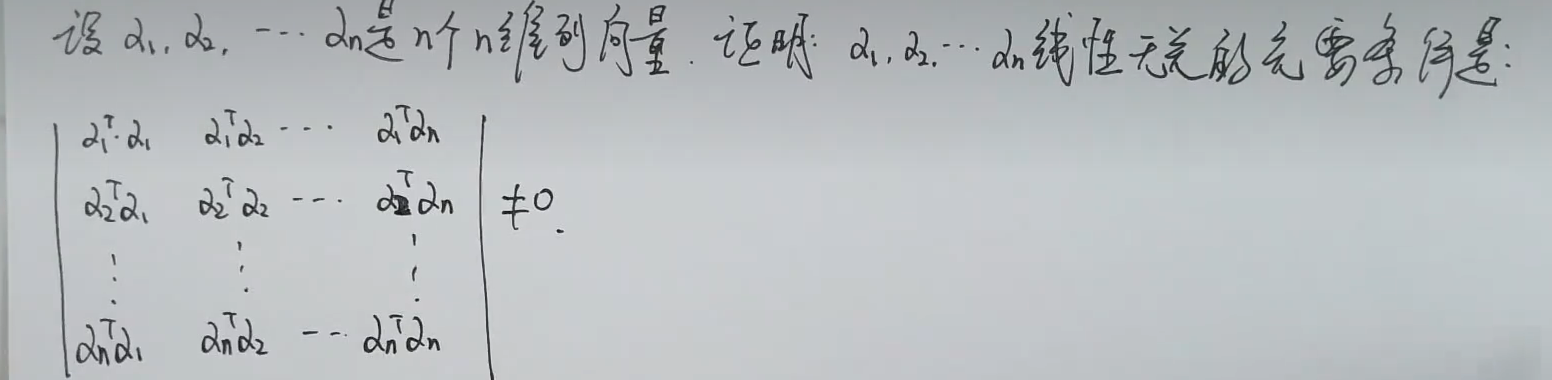 设 α₁, α₂, ··· αₙ是n个n维列向量. 证明: α₁, α₂, ··· αₙ线性无关的充要条件是:
α₁ᵀ·α₁ α₁ᵀα₂ ··· α₁ᵀαₙ
α₂ᵀα₁ α₂ᵀα₂ ··· α₂ᵀαₙ ≠0.
⋮ ⋮ ⋮
αₙᵀα₁ αₙᵀα₂ ··· αₙᵀαₙ